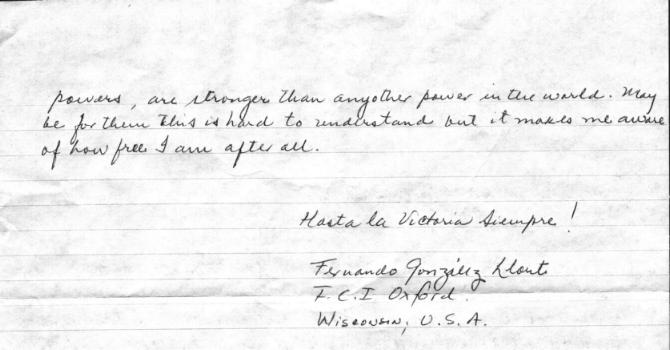 powers, are stronger than anyother power in the world. May
be for them this is hard to understand but it makes me aware
of how free I am after all.
Hasta la Victoria Siempre!
Fernando González Llort
F.C.I Oxford.
Wisconsin, U.S.A.